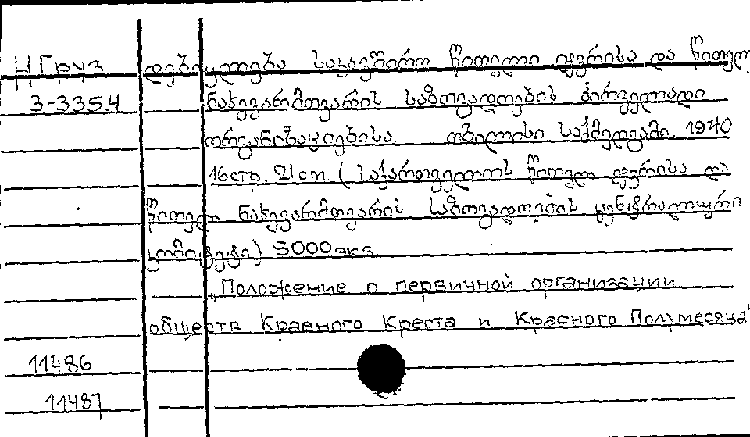 Н Груз დებულება საკავშირო წითელი ჯვრისა და წითელ
3-335.4 ნახევარმთვარის საზოგადოების პირველადი
ორგანიზაციებისა თბილისი საქმედგამი 1940
16стр. 21см. (საქართველოს წითელ ჯვრისა და
წითელ ნახევარმთვარის საზოგადოების ცენტრალური
კომიტეტი) 3000 экз.
„Положение о первичной организации
обществ Красного Креста и Красного Полумесяца"
11486
11487